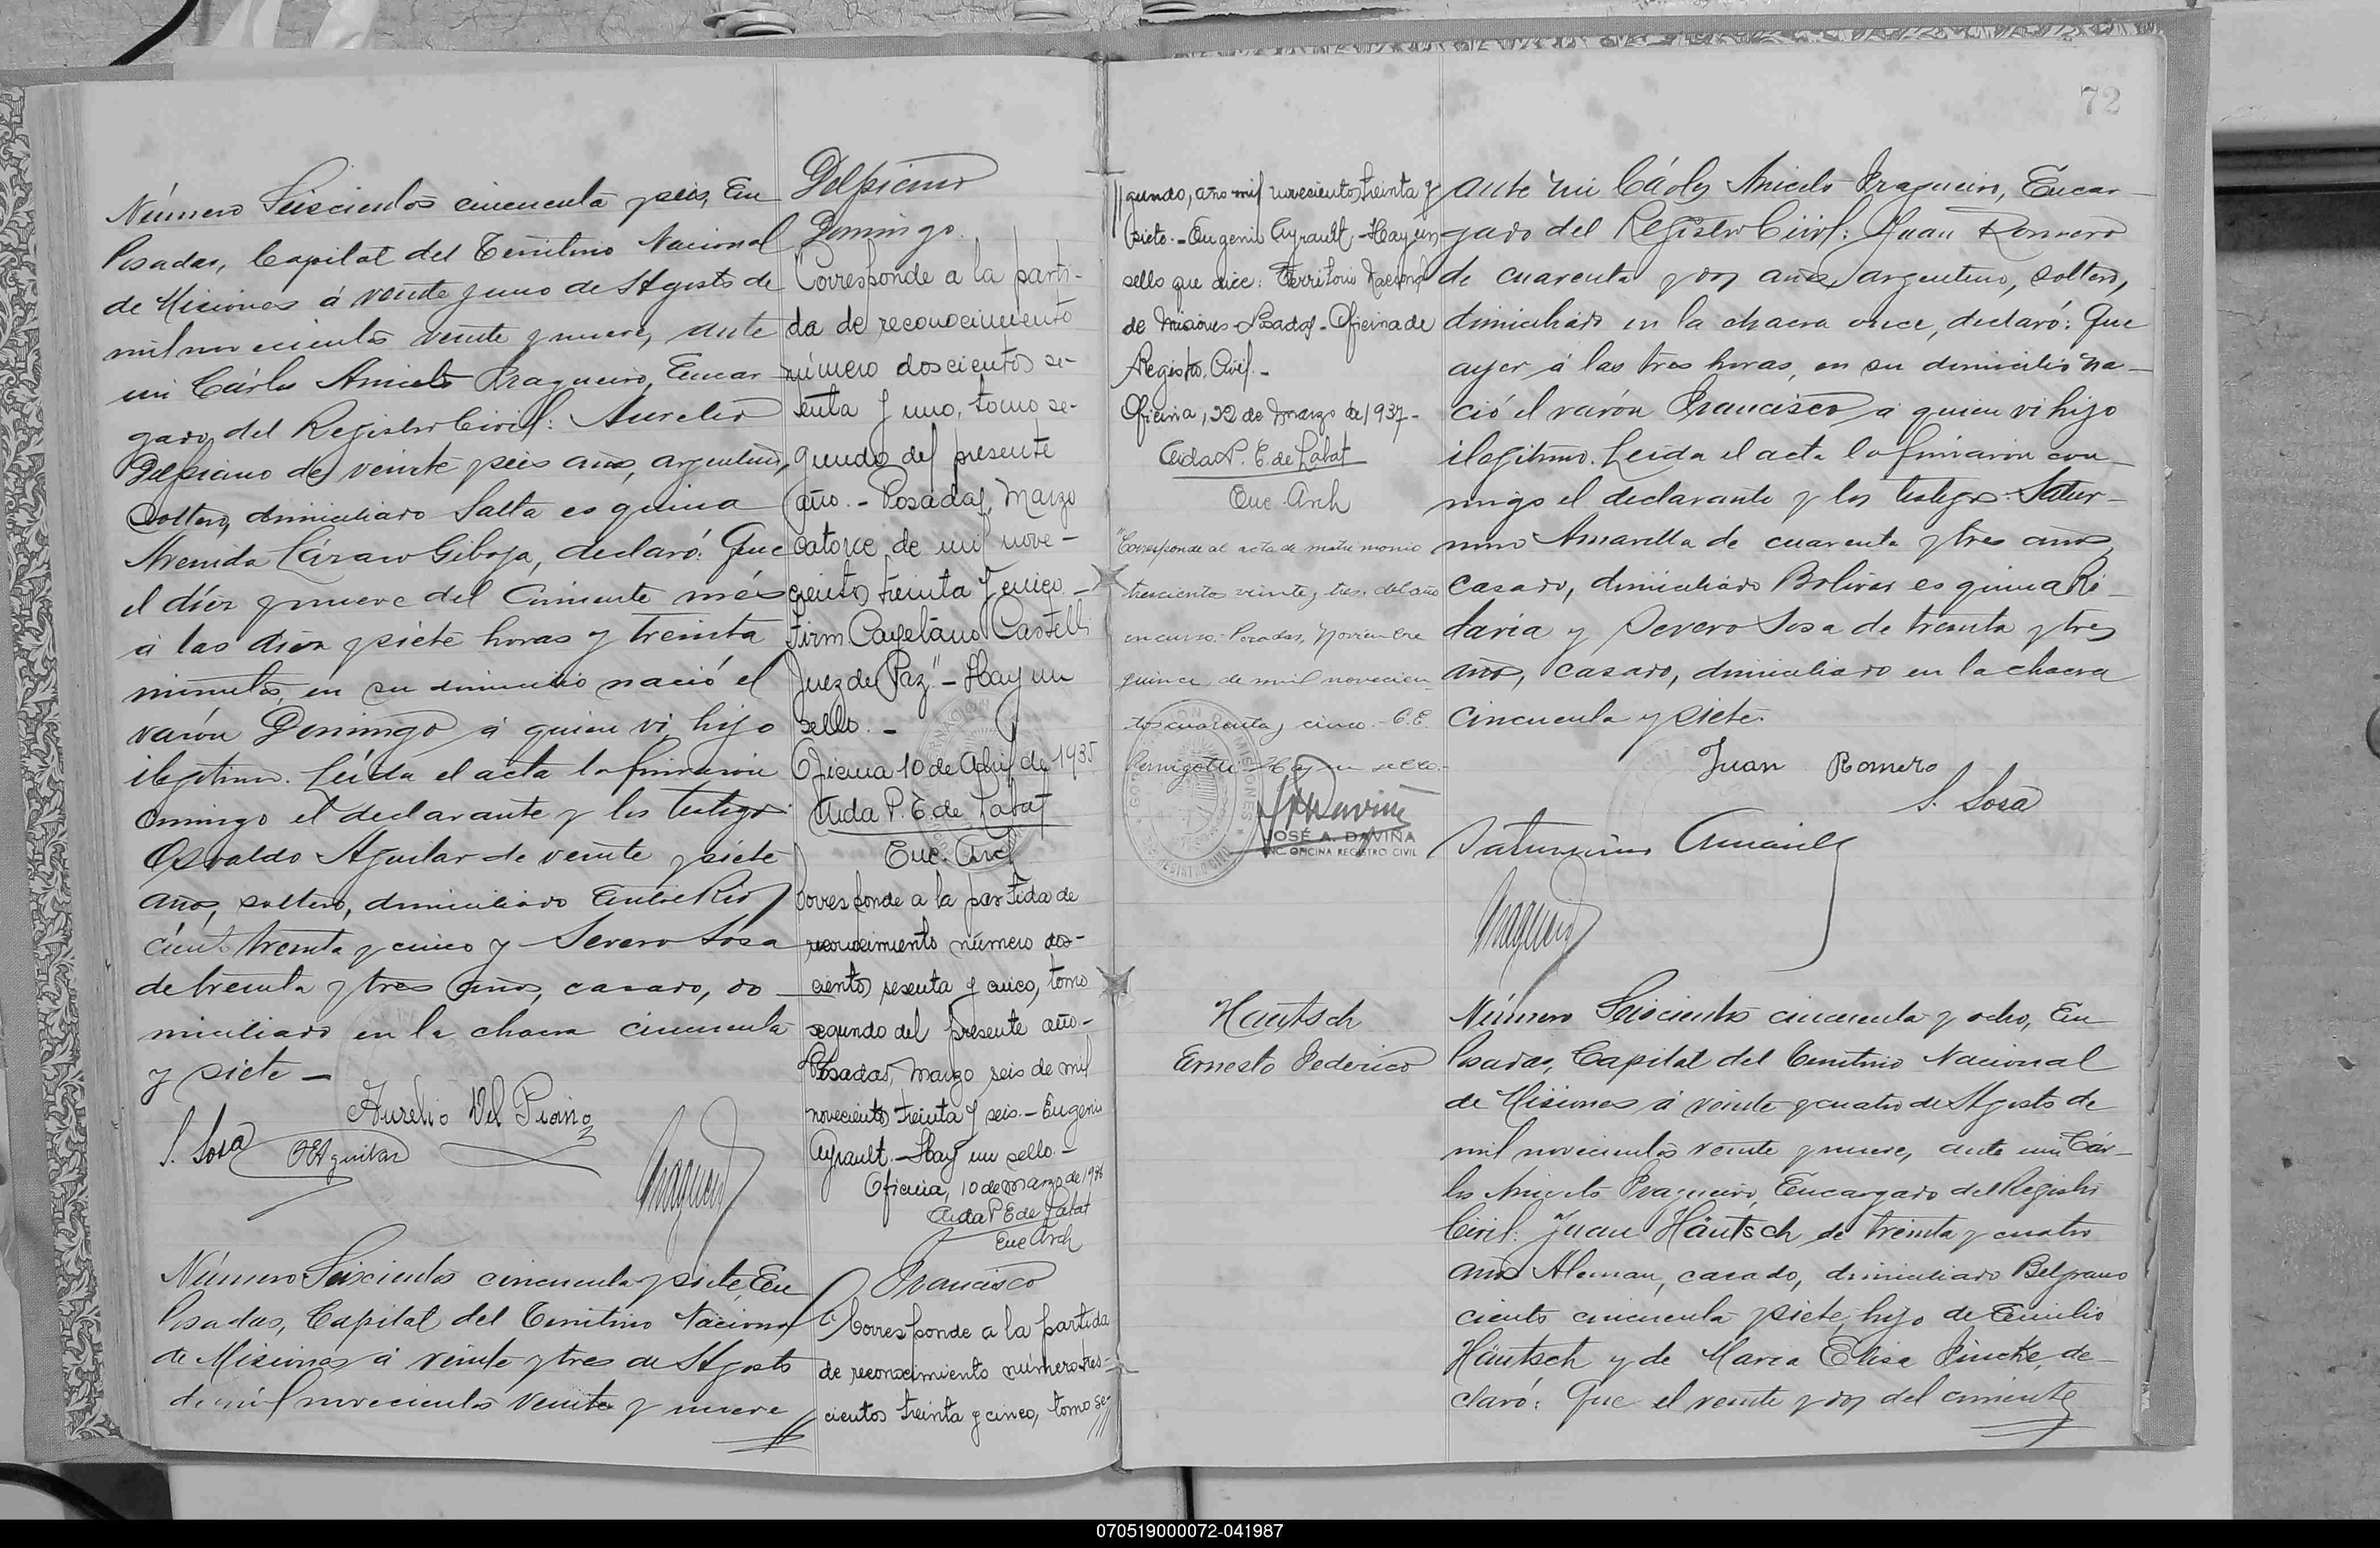 Número Seiscientos cincuenta y seis, En
Posadas, Capital del Territorio Nacional
de Misiones á veinte y uno de Agosto de
mil novecientos veinte y nueve, ante
mi Cárlos Aniceto Fragueiro, Encar-
gado del Registro Civil: Aurelio
Delpiano de veinte y seis años, argentino,
soltero, domiciliado Salta esquina
Avenida Lázaro Giboja, declaró: Que
el díez y nueve del corriente més
á las díez y siete horas y treinta
minutos, en su domicilio nació el
varón Domingo á quien vi hijo
ilegítimo. Leída el acta la firmaron
conmigo el declarante y los testigos:
Osvaldo Aguilar de veinte y siete
años, soltero, domiciliado Entre Ríos
ciento treinta y cinco y Severo Sosa
de treinta y tres años, casado, do-
miciliado en la chacra cincuenta
y siete —
Aurelio Del Piano
S. Sosa OAguilar
Fragueiro
Número Seiscientos cincuenta y siete, En
Posadas, Capital del Territorio Nacional
de Misiones á veinte y tres de Agosto
de mil novecientos veinte y nueve //
Delpiano
Domingo.
"Corresponde a la parti-
da de reconocimiento
número doscientos se-
senta y uno, tomo se-
gundo del presente
año.- Posadas, Marzo
catorce de mil nove-
cientos treinta y cinco.-
Firm Cayetano Castelli
Juez de Paz."- Hay un
sello.-
Oficina 10 de Abril de 1935
Aida P. E. de Labat
Enc. Arch
Corresponde a la partida de
reconocimiento número dos-
cientos sesenta y cinco, tomo
segundo del presente año.-
Posadas, Marzo seis de mil
novecientos treinta y seis.- Eugenio
Ayrault.- Hay un sello.-
Oficina, 10 de Marzo de 1936
Aida P E de Labat
Enc Arch
Francisco
"Corresponde a la partida
de reconocimiento número tres-
cientos treinta y cinco, tomo se-//
72
//gundo, año mil novecientos treinta y
siete.- Eugenio Ayrault.- Hay un
sello que dice: Territorio Nacional
de Misiones - Posadas - Oficina de
Registro Civil.-
Oficina, 22 de Marzo de 1937-
Aida P. E. de Labat
Enc Arch
"Corresponde al acta de matrimonio
trescientos veinte y tres del año
en curso.- Posadas, Noviembre
quince de mil novecien-
tos cuarenta y cinco.- C.E.
Hay un sello.-
JOSÉ A. DAVIÑA
ENC. OFICINA REGISTRO CIVIL
ante mi Cárlos Aniceto Fragueiro, Encar-
gado del Registro Civil: Juan Romero
de cuarenta y dos años, argentino, soltero,
domiciliado en la chacra once, declaró: Que
ayer á las tres horas, en su domicilio na-
ció el varón Francisco á quien vi hijo
ilegítimo. Leída el acta la firmaron con-
migo el declarante y los testigos: Satur-
nino Amarilla de cuarenta y tres años,
casado, domiciliado Bolivar esquina Ri-
vadavia y Severo Sosa de treinta y tres
años, casado, domiciliado en la chacra
cincuenta y siete.
Juan Romero
S. Sosa
Saturnino Amarilla
Fragueiro
Häutsch
Ernesto Federico
Número Seiscientos cincuenta y ocho, En
Posadas, Capital del Territorio Nacional
de Misiones á veinte y cuatro de Agosto de
mil novecientos veinte y nueve, ante mi Cár-
los Aniceto Fragueiro, Encargado del Registro
Civil: Juan Häutsch de treinta y cuatro
años Aleman, casado, domiciliado Belgrano
ciento cincuenta y siete, hijo de Emilio
Häutsch y de Maria Elisa Fincke, de-
claró: Que el veinte y dos del corriente
070519000072-041987